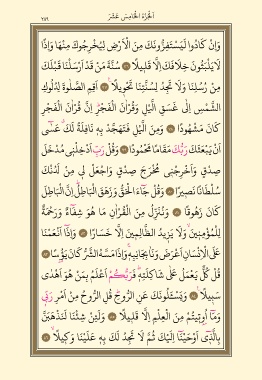 الجزء الخامس عشر
٢٨٩
وَإِنْ كَادُوا لَيَسْتَفِزُّونَكَ مِنَ الْاَرْضِ لِيُخْرِجُوكَ مِنْهَا وَاِذًا
لَا يَلْبَثُونَ خِلَافَكَ اِلَّا قَلِيلًا ﴿٧٦﴾ سُنَّةَ مَنْ قَدْ اَرْسَلْنَا قَبْلَكَ
مِنْ رُسُلِنَا وَلَا تَجِدُ لِسُنَّتِنَا تَحْوِيلًا ﴿٧٧﴾ اَقِمِ الصَّلٰوةَ لِدُلُوكِ
الشَّمْسِ اِلٰى غَسَقِ الَّيْلِ وَقُرْاٰنَ الْفَجْرِ اِنَّ قُرْاٰنَ الْفَجْرِ
كَانَ مَشْهُودًا ﴿٧٨﴾ وَمِنَ الَّيْلِ فَتَهَجَّدْ بِه۪ نَافِلَةً لَكَ عَسٰٓى
اَنْ يَبْعَثَكَ رَبُّكَ مَقَامًا مَحْمُودًا ﴿٧٩﴾ وَقُلْ رَبِّ اَدْخِلْن۪ي مُدْخَلَ
صِدْقٍ وَاَخْرِجْن۪ي مُخْرَجَ صِدْقٍ وَاجْعَلْ ل۪ي مِنْ لَدُنْكَ
سُلْطَانًا نَص۪يرًا ﴿٨٠﴾ وَقُلْ جَٓاءَ الْحَقُّ وَزَهَقَ الْبَاطِلُ اِنَّ الْبَاطِلَ
كَانَ زَهُوقًا ﴿٨١﴾ وَنُنَزِّلُ مِنَ الْقُرْاٰنِ مَا هُوَ شِفَٓاءٌ وَرَحْمَةٌ
لِلْمُؤْمِن۪ينَ وَلَا يَز۪يدُ الظَّالِم۪ينَ اِلَّا خَسَارًا ﴿٨٢﴾ وَاِذَٓا اَنْعَمْنَا
عَلَى الْاِنْسَانِ اَعْرَضَ وَنَاٰ بِجَانِبِه۪ وَاِذَا مَسَّهُ الشَّرُّ كَانَ يَؤُ۫سًا ﴿٨٣﴾
قُلْ كُلٌّ يَعْمَلُ عَلٰى شَاكِلَتِه۪ فَرَبُّكُمْ اَعْلَمُ بِمَنْ هُوَ اَهْدٰى
سَب۪يلًا ﴿٨٤﴾ وَيَسْـَٔلُونَكَ عَنِ الرُّوحِ قُلِ الرُّوحُ مِنْ اَمْرِ رَبّ۪ي
وَمَٓا اُو۫ت۪يتُمْ مِنَ الْعِلْمِ اِلَّا قَل۪يلًا ﴿٨٥﴾ وَلَئِنْ شِئْنَا لَنَذْهَبَنَّ
بِالَّذ۪ٓي اَوْحَيْنَٓا اِلَيْكَ ثُمَّ لَا تَجِدُ لَكَ بِه۪ عَلَيْنَا وَك۪يلًا ﴿٨٦﴾